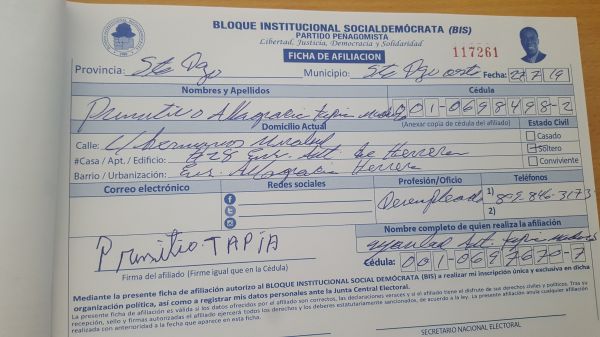 BLOQUE INSTITUCIONAL SOCIALDEMÓCRATA (BIS)
PARTIDO PEÑAGOMISTA
Libertad, Justicia, Democracia y Solidaridad
FICHA DE AFILIACION
117261
Provincia: Sto Dgo Municipio: Sto Dgo oeste Fecha: 7/19
Nombres y Apellidos Cédula
Primitivo Altagracia Tapia 001-0698498-2
Domicilio Actual (Anexar copia de cédula del afiliado) Estado Civil
Calle: Hermanos Casado
#Casa / Apt. / Edificio: #28 Ens. Alt. de Herrera Soltero
Barrio / Urbanización: Ens. Altagracia Herrera Conviviente
Correo electrónico Redes sociales Profesión/Oficio Teléfonos
Desempleado 1) 809-846-3173
2)
Primitio TAPIA
Nombre completo de quien realiza la afiliación
Ant. Tapia
Firma del afiliado (Firme igual que en la Cédula)
Cédula: 001-0697670-7
Mediante la presente ficha de afiliación autorizo al BLOQUE INSTITUCIONAL SOCIAL DEMÓCRATA (BIS) a realizar mi inscripción única y exclusiva en dicha
organización política, así como a registrar mis datos personales ante la Junta Central Electoral.
La presente ficha de afiliación es válida si los datos ofrecidos por el afiliado son correctos, las declaraciones veraces y si el afiliado tiene el disfrute de sus derechos civiles y políticos. Tras su
recepción, sello y firmas autorizadas el afiliado ejercerá todos los derechos y los deberes estatutariamente sancionados, de acuerdo a la ley. La presente afiliación anula cualquier afiliación
realizada con anterioridad a la fecha que aparece en esta ficha.
SECRETARIO NACIONAL ELECTORAL